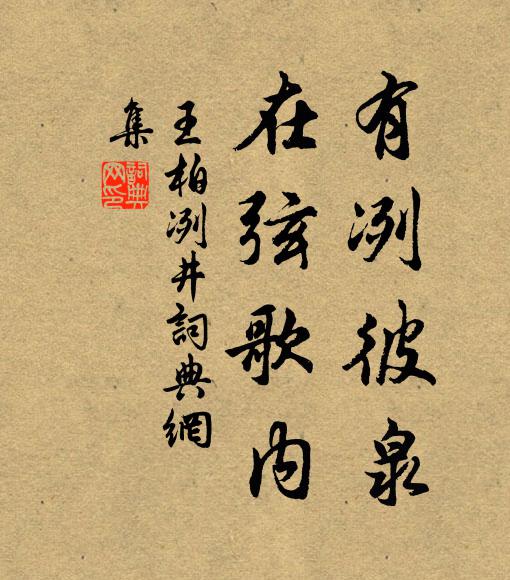 有冽彼泉
在弦歌内
王柏冽井詞典網
集
詞典网印